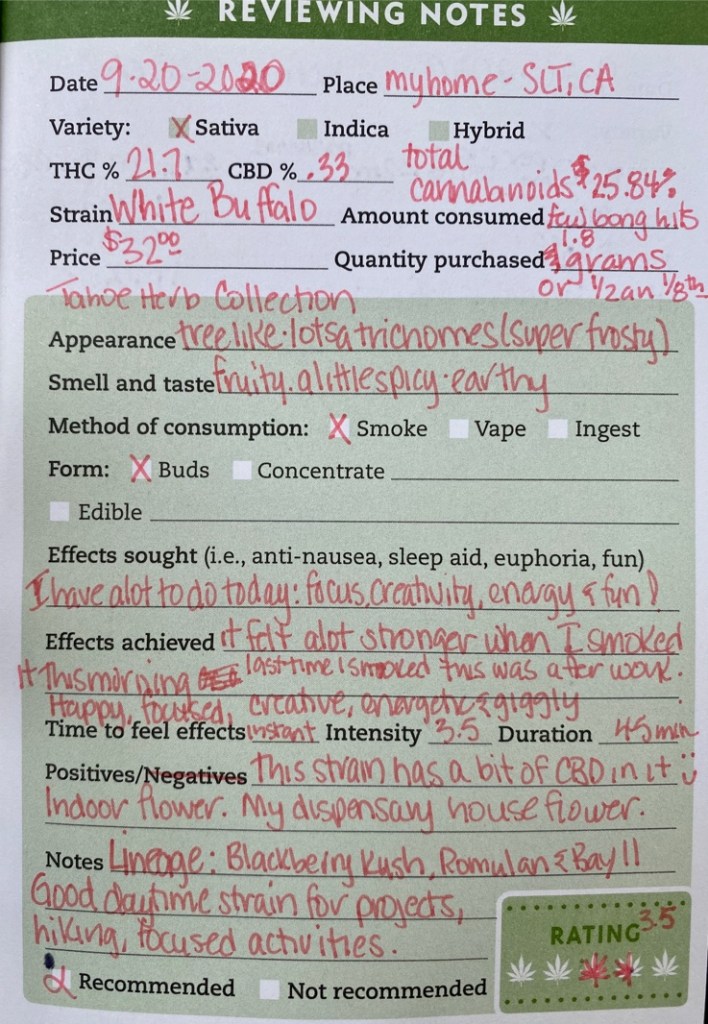 REVIEWING NOTES
Date 9-20-2020 Place my home - SLT, CA
Variety: X Sativa Indica Hybrid
THC % 21.7 CBD % .33 total cannabanoids 25.84%
Strain White Buffalo Amount consumed few bong hits
Price $32.00 Quantity purchased 1.8 grams
or 1/2 an 1/8th
Tahoe Herb Collection
Appearance treelike. lotsa trichomes (super frosty)
Smell and taste fruity. a little spicy. earthy
Method of consumption: X Smoke Vape Ingest
Form: X Buds Concentrate
Edible
Effects sought (i.e., anti-nausea, sleep aid, euphoria, fun)
I have alot to do today: focus, creativity, energy & fun!
Effects achieved it felt alot stronger when I smoked
it this morning last time I smoked this was after work.
Happy, focused, creative, energetic & giggly
Time to feel effects instant Intensity 3.5 Duration 45 min
Positives/Negatives This strain has a bit of CBD in it
Indoor flower. My dispensary house flower.
Notes Lineage: Blackberry Kush, Romulan & Bay 11
Good daytime strain for projects,
hiking, focused activities.
RATING 3.5
Recommended Not recommended